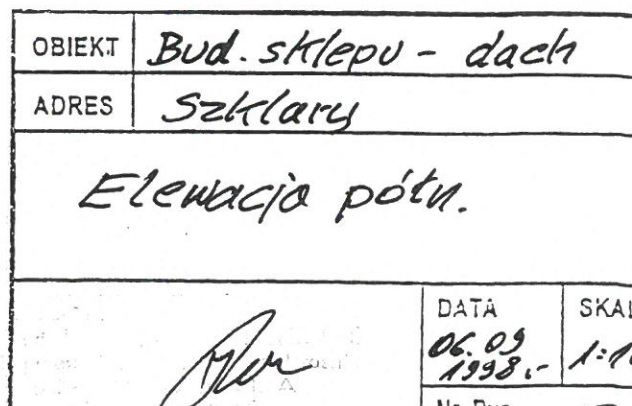 OBIEKT Bud. sklepu - dach
ADRES Szklary
Elewacja półn.
DATA
06.09
1998.-